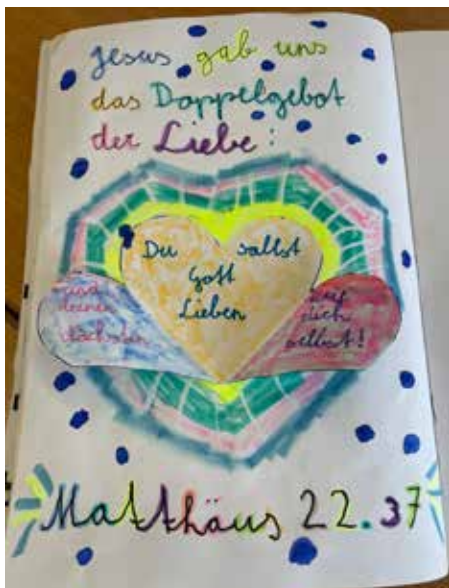 Jesus gab uns
das Doppelgebot
der Liebe:
Du sollst
Gott
Lieben
und
deinen
Nächsten
wie
dich
selbst!
Matthäus 22.37